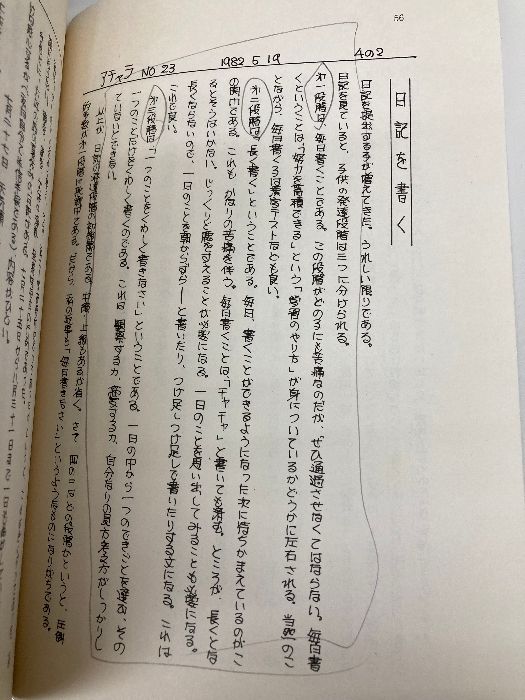 56
アチャラ NO 23 1982 5 19 4の2
日記を書く
日記を提出する子が増えてきた。うれしい限りである。
日記を見ていると、子供の発達段階は三つに分けられる。
第一段階は、毎日書くことである。この段階がどの子にも苦痛なのだが、ぜひ通過させなくてはならない。毎日書
くということは「努力を蓄積できる」という「学習のやり方」が身についているかどうかに左右される。当然のこ
とながら、毎日書く子は漢字テストなども良い。
第二段階は「長く書く」ということである。毎日、書くことができるようになった次に待ちかまえているのがこ
の関門である。これも かなりの苦痛を伴う。毎日書くことは「チャチャ」と書いても済む。ところが、長くとな
るとそうはいかない。じっくりと腰をすえることが必要になる。一日のことを思い出してみることも必要になる。
長くならないので、一日のことを朝からずらーと書いたり、つけ足しつけ足しで書いたりする文になる。これは
これで良い。
第三段階は「一つのことをくわしく書きなさい」ということである。一日の中から一つのできごとを選び、その
一つのことだけをくわしく書くのである。これは 観察する力、 自分なりの見方考え方がしっかりし
ていないとできない。
以上が、日記の発達段階の初期編である。中級、上級もあるが省く。さて、四の二はどの段階かというと、圧倒
的多数が第一段階に挑戦中である。だから、私の返事も「毎日書きなさい」というようなものになりがちである。